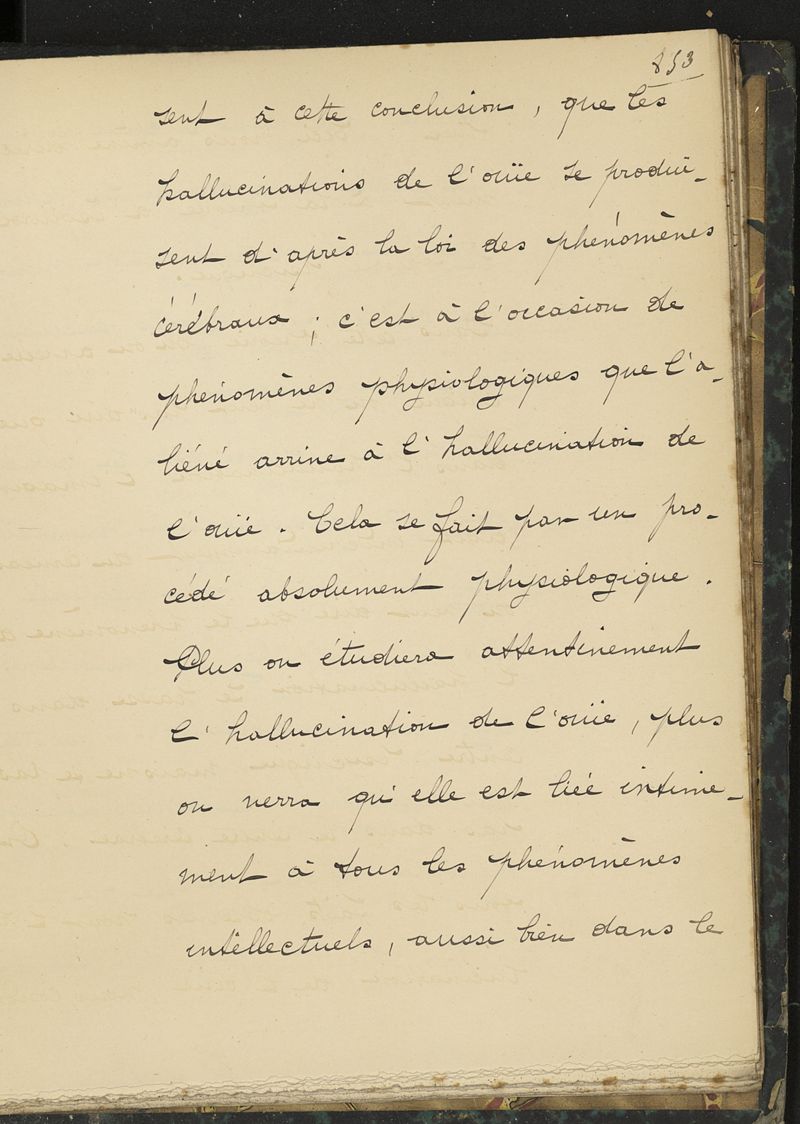 853
sent à cette conclusion, que les
hallucinations de l'ouïe se produi-
sent d'après la loi des phénomènes
cérébraux ; c'est à l'occasion de
phénomènes physiologiques que l'a-
liéné arrive à l'hallucination de
l'ouïe. Cela se fait par un pro-
cédé absolument physiologique.
Plus on étudiera attentivement
l'hallucination de l'ouïe, plus
on verra qu'elle est liée intime-
ment à tous les phénomènes
intellectuels, aussi bien dans le